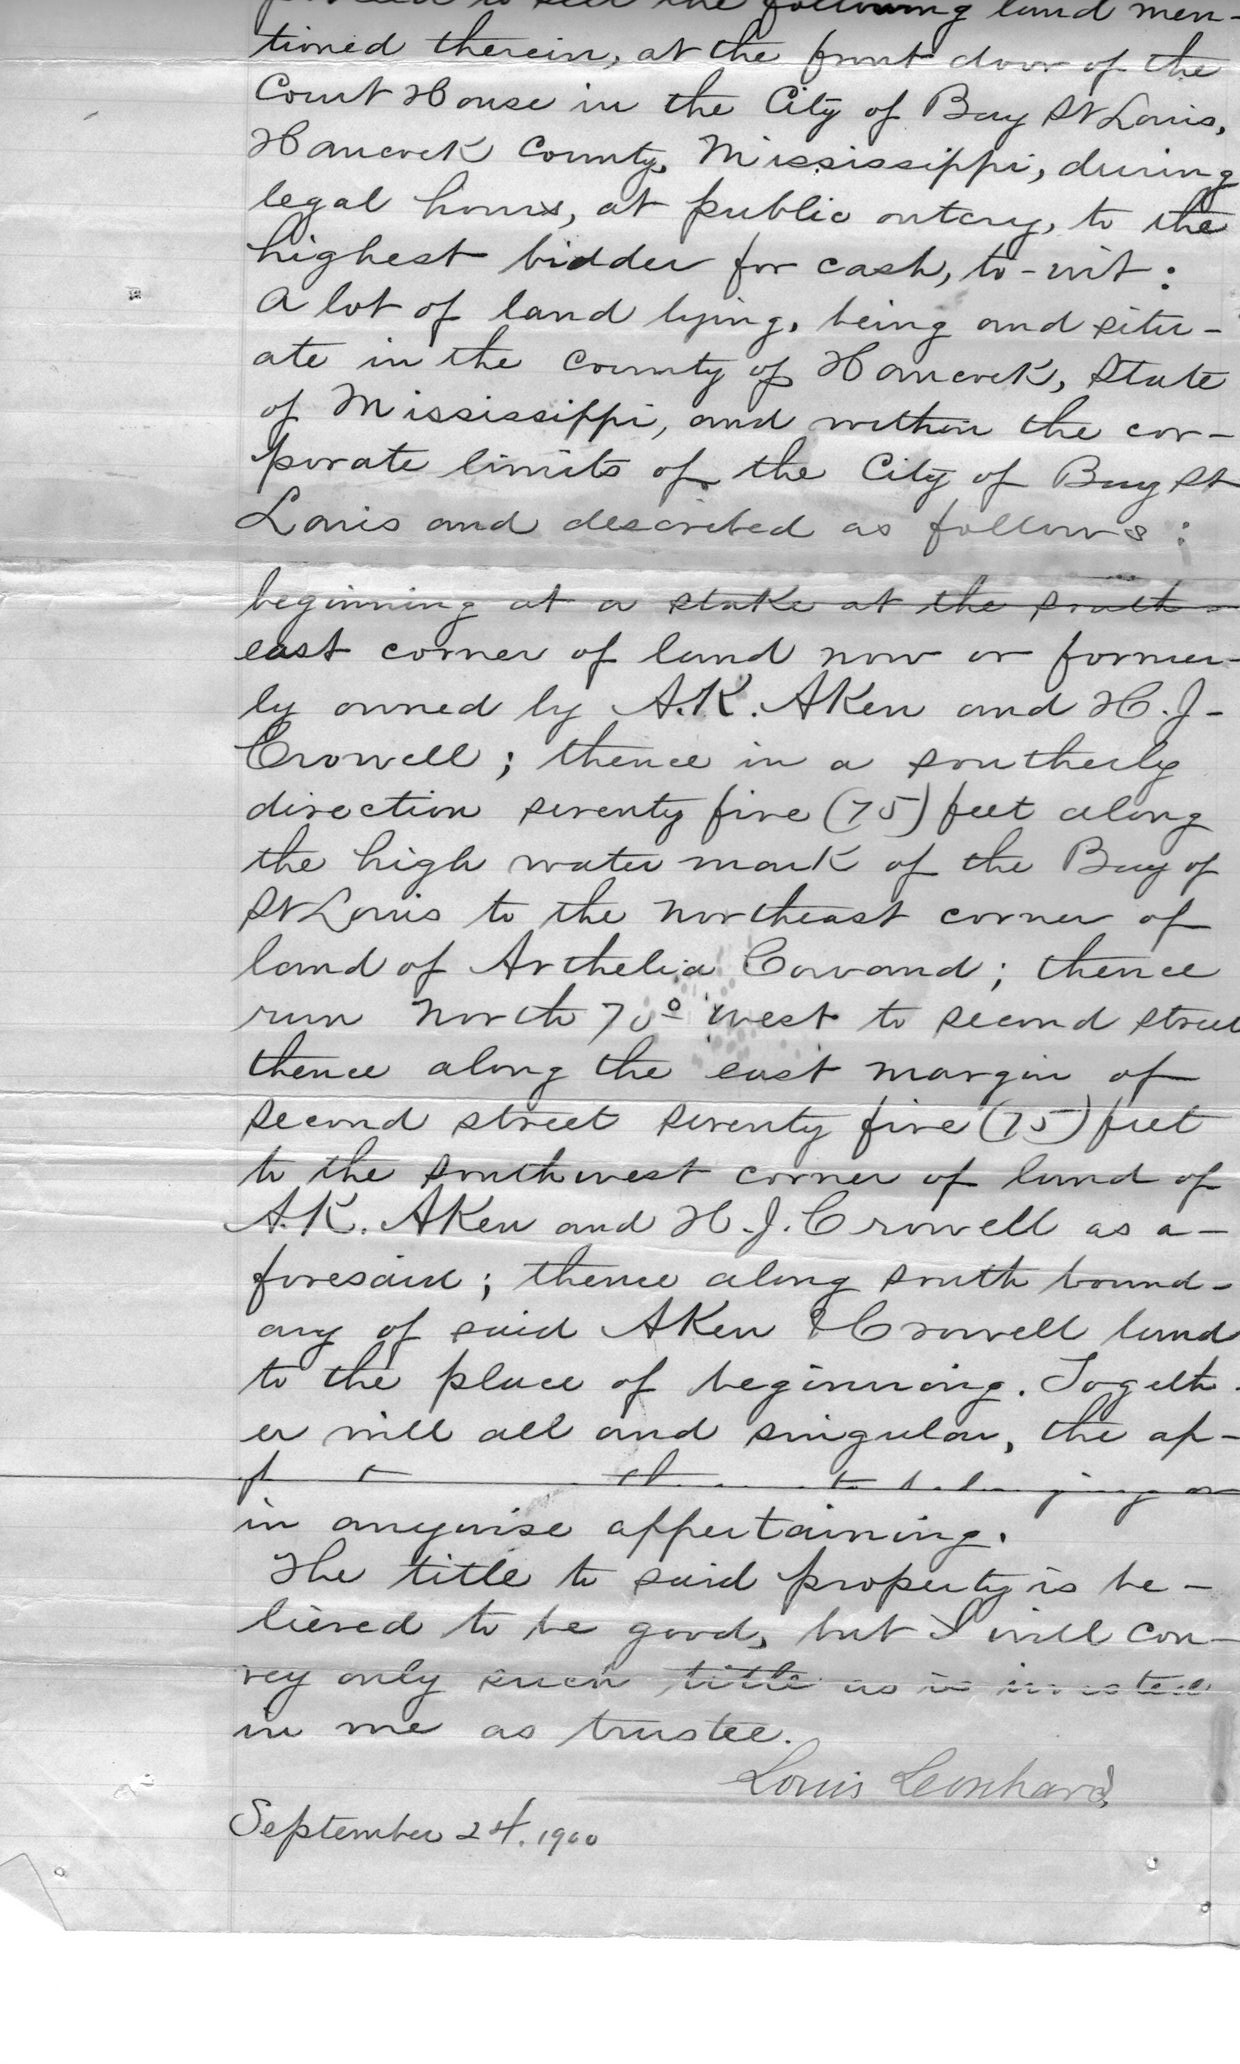 proceed to sell the following land men-
tioned therein, at the front door of the
Court House in the City of Bay St Louis,
Hancock County, Mississippi, during
legal hours, at public outcry, to the
highest bidder for cash, to-wit:
A lot of land lying, being and situ-
ate in the county of Hancock, State
of Mississippi, and within the cor-
porate limits of the City of Bay St
Louis and described as follows:
beginning at a stake at the south-
east corner of land now or former-
ly owned by A.K. Aken and H.J.
Crowell; thence in a southerly
direction seventy five (75) feet along
the high water mark of the Bay of
St Louis to the northeast corner of
land of Arthelia Cowand; thence
run North 70° west to second street
thence along the east margin of
second street seventy five (75) feet
to the southwest corner of land of
A.K. Aken and H.J. Crowell as a-
foresaid; thence along south bound-
ary of said Aken & Crowell land
to the place of beginning. Togeth-
er with all and singular, the ap-
belonging or
in anywise appertaining.
The title to said property is be-
lieved to be good, but I will con-
vey only such title as is invested
in me as trustee.
Louis Leonhard
September 24. 1900